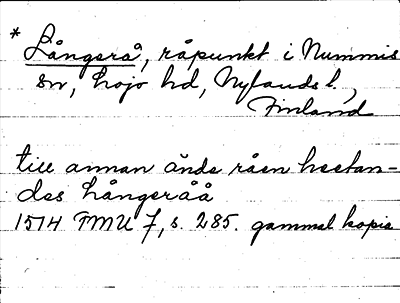 * Långsrå, råpunkt i Nummis
sn, Lojo hd, Nylands l.,
Finland
till annan ände råen heetan-
des långeråå
1514 FMU 7, s. 285. gammal kopia